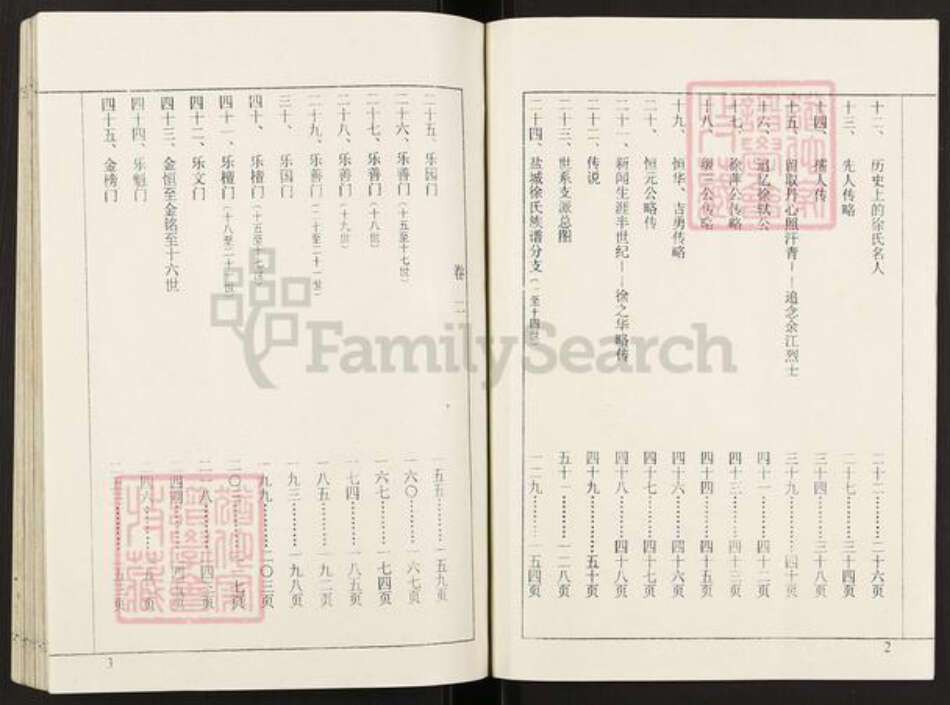 十二、历史上的徐氏名人 二十二………二十六页
十三、先人传略 二十七………三十四页
十四、 人传 三十四………三十八页
十五、留取丹心照汗青——追念余江烈士 三十九………四十页
十六、追忆徐 公 四十一………四十二页
十七、徐 公传略 四十三………四十三页
十八、 三公传略 四十四………四十五页
十九、恒华、吉勇传略 四十六………四十六页
二十、恒元公略传 四十七………四十七页
二十一、新闻生涯半世纪——徐之华略传 四十八………四十八页
二十二、传说 四十九………五十页
二十三、世系支派总图 五十一………一二八页
二十四、盐城徐氏族谱分支(一至十四世) 一二九………一五四页
2
卷二
二十五、乐园门 一五五………一五九页
二十六、乐善门(十五至十七世) 一六〇………一六七页
二十七、乐善门(十八世) 一六七………一七四页
二十八、乐善门(十九世) 一七四………一八五页
二十九、乐善门(二十至二十一世) 一八五………一九二页
三十、乐国门 一九三………一九八页
四十、乐檀门(十五至十七世) 一九九………二〇二页
四十一、乐檀门(十八至二十一世) 二〇三………
四十二、乐文门
四十三、金恒至金铭至十六世
四十四、乐魁门
四十五、金榜门
3
FamilySearch